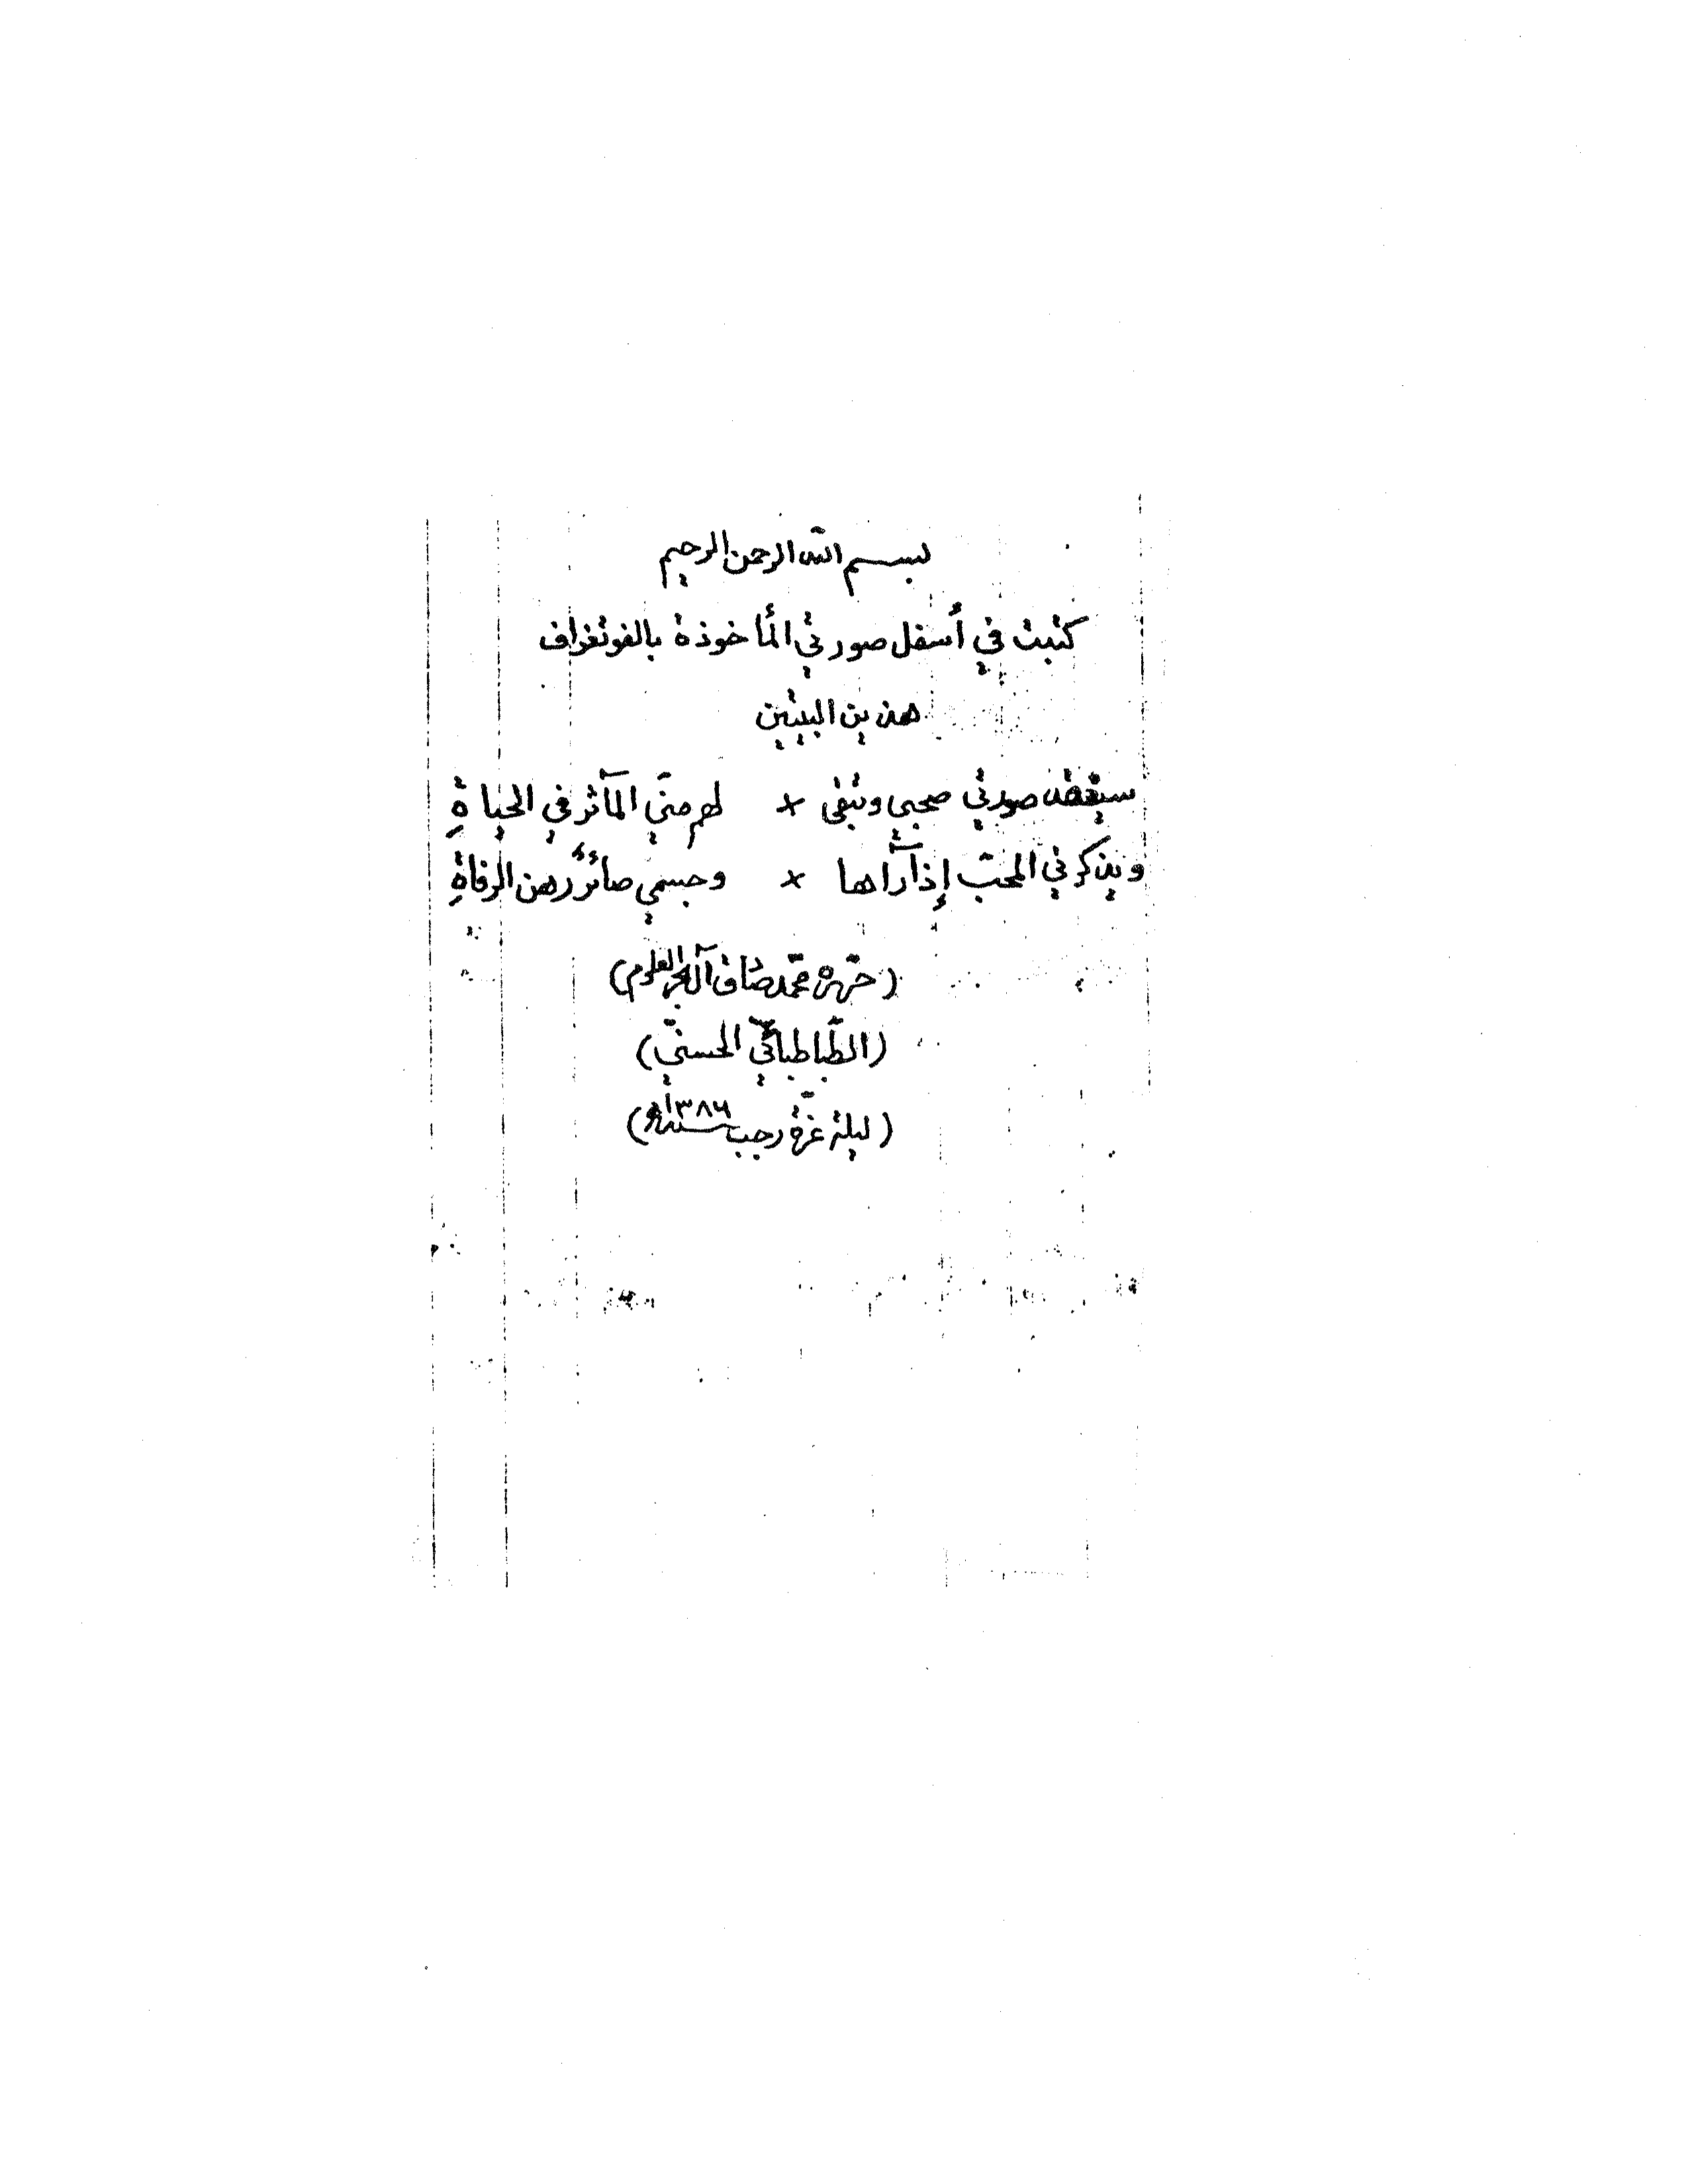 بسم الله الرحمن الرحيم
كتبت في أسفل صورتي المأخوذة بالفوتغراف
هذين البيتين
صورتي صحبي وتبقى × لهم منّي المآثر في الحياةِ
ويذكرني المحبّ إذا رآها × وجسمي صائرٌ رهن الرفاةِ
(حرّره محمّد صادق آل بحر العلوم)
(الطّباطبائيّ الحسنيّ)
(ليلة غرّة رجب سنة ١٣٨٦هـ)